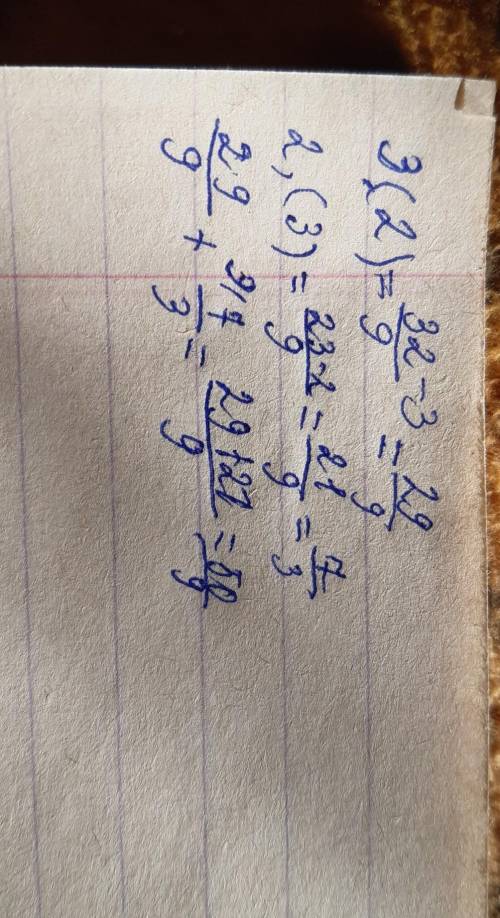 3,(2) = 32-3/9 = 29/9
2,(3) = 23-2/9 = 21/9 = 7/3
29/9 + 3/ 7/3 = 29+21/9 = 50/9